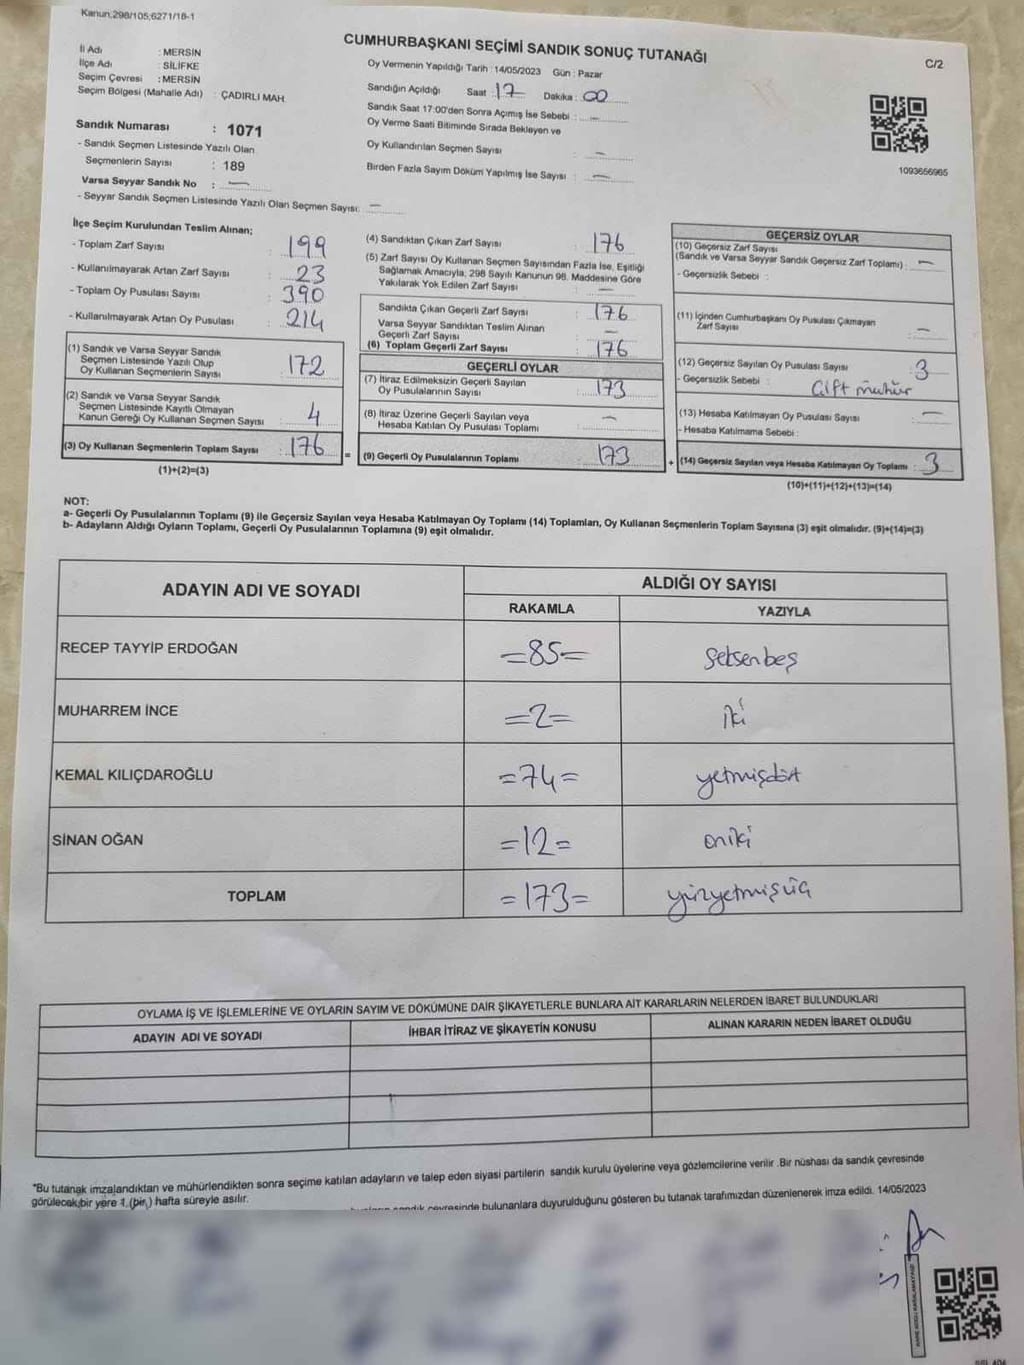 Kanun:298/105;6271/18-1
CUMHURBAŞKANI SEÇİMİ SANDIK SONUÇ TUTANAĞI
C/2
İl Adı : MERSİN
İlçe Adı : SİLİFKE
Seçim Çevresi : MERSİN
Seçim Bölgesi (Mahalle Adı) : ÇADIRLI MAH.
Sandık Numarası : 1071
- Sandık Seçmen Listesinde Yazılı Olan
Seçmenlerin Sayısı : 189
Varsa Seyyar Sandık No : —
- Seyyar Sandık Seçmen Listesinde Yazılı Olan Seçmen Sayısı: —
Oy Vermenin Yapıldığı Tarih : 14/05/2023 Gün : Pazar
Sandığın Açıldığı Saat : 17 Dakika : 00
Sandık Saat 17:00'den Sonra Açımış İse Sebebi : —
Oy Verme Saati Bitiminde Sırada Bekleyen ve
Oy Kullandırılan Seçmen Sayısı : —
Birden Fazla Sayım Döküm Yapılmış İse Sayısı : —
1093656965
İlçe Seçim Kurulundan Teslim Alınan;
- Toplam Zarf Sayısı : 199
- Kullanılmayarak Artan Zarf Sayısı : 23
- Toplam Oy Pusulası Sayısı : 390
- Kullanılmayarak Artan Oy Pusulası : 214
(1) Sandık ve Varsa Seyyar Sandık
Seçmen Listesinde Yazılı Olup
Oy Kullanan Seçmenlerin Sayısı : 172
(2) Sandık ve Varsa Seyyar Sandık
Seçmen Listesinde Kayıtlı Olmayan
Kanun Gereği Oy Kullanan Seçmen Sayısı : 4
(3) Oy Kullanan Seçmenlerin Toplam Sayısı : 176
(1)+(2)=(3)
(4) Sandıktan Çıkan Zarf Sayısı : 176
(5) Zarf Sayısı Oy Kullanan Seçmen Sayısından Fazla İse, Eşitliği
Sağlamak Amacıyla, 298 Sayılı Kanunun 98. Maddesine Göre
Yakılarak Yok Edilen Zarf Sayısı : —
Sandıkta Çıkan Geçerli Zarf Sayısı : 176
Varsa Seyyar Sandıktan Teslim Alınan
Geçerli Zarf Sayısı : —
(6) Toplam Geçerli Zarf Sayısı : 176
GEÇERLİ OYLAR
(7) İtiraz Edilmeksizin Geçerli Sayılan
Oy Pusulalarının Sayısı : 173
(8) İtiraz Üzerine Geçerli Sayılan veya
Hesaba Katılan Oy Pusulası Toplamı : —
= (9) Geçerli Oy Pusulalarının Toplamı : 173
GEÇERSİZ OYLAR
(10) Geçersiz Zarf Sayısı
(Sandık ve Varsa Seyyar Sandık Geçersiz Zarf Toplamı) : —
- Geçersizlik Sebebi :
(11) İçinden Cumhurbaşkanı Oy Pusulası Çıkmayan
Zarf Sayısı : —
(12) Geçersiz Sayılan Oy Pusulası Sayısı : 3
- Geçersizlik Sebebi : Çift mühür
(13) Hesaba Katılmayan Oy Pusulası Sayısı : —
- Hesaba Katılmama Sebebi :
+ (14) Geçersiz Sayılan veya Hesaba Katılmayan Oy Toplamı : 3
(10)+(11)+(12)+(13)=(14)
NOT:
a- Geçerli Oy Pusulalarının Toplamı (9) ile Geçersiz Sayılan veya Hesaba Katılmayan Oy Toplamı (14) Toplamları, Oy Kullanan Seçmenlerin Toplam Sayısına (3) eşit olmalıdır. (9)+(14)=(3)
b- Adayların Aldığı Oyların Toplamı, Geçerli Oy Pusulalarının Toplamına (9) eşit olmalıdır.
ADAYIN ADI VE SOYADI ALDIĞI OY SAYISI
RAKAMLA YAZIYLA
RECEP TAYYİP ERDOĞAN =85= Seksenbeş
MUHARREM İNCE =2= İki
KEMAL KILIÇDAROĞLU =74= yetmişdört
SİNAN OĞAN =12= oniki
TOPLAM =173= yüzyetmişüç
OYLAMA İŞ VE İŞLEMLERİNE VE OYLARIN SAYIM VE DÖKÜMÜNE DAİR ŞİKAYETLERLE BUNLARA AİT KARARLARIN NELERDEN İBARET BULUNDUKLARI
ADAYIN ADI VE SOYADI İHBAR İTİRAZ VE ŞİKAYETİN KONUSU ALINAN KARARIN NEDEN İBARET OLDUĞU
*Bu tutanak imzalandıktan ve mühürlendikten sonra seçime katılan adayların ve talep eden siyasi partilerin sandık kurulu üyelerine veya gözlemcilerine verilir .Bir nüshası da sandık çevresinde
görülecek bir yere 1 (bir) hafta süreyle asılır.
sandık çevresinde bulunanlara duyurulduğunu gösteren bu tutanak tarafımızdan düzenlenerek imza edildi. 14/05/2023